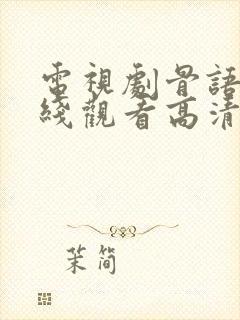 電視劇骨語
綫觀看高清
茉简